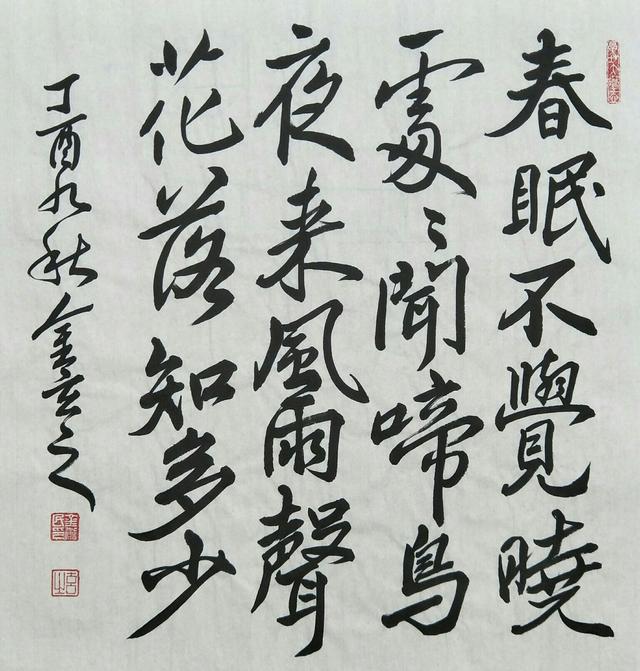 春眠不覺曉
處〻聞啼鳥
夜来風雨聲
花落知多少
丁酉九秋金玄之